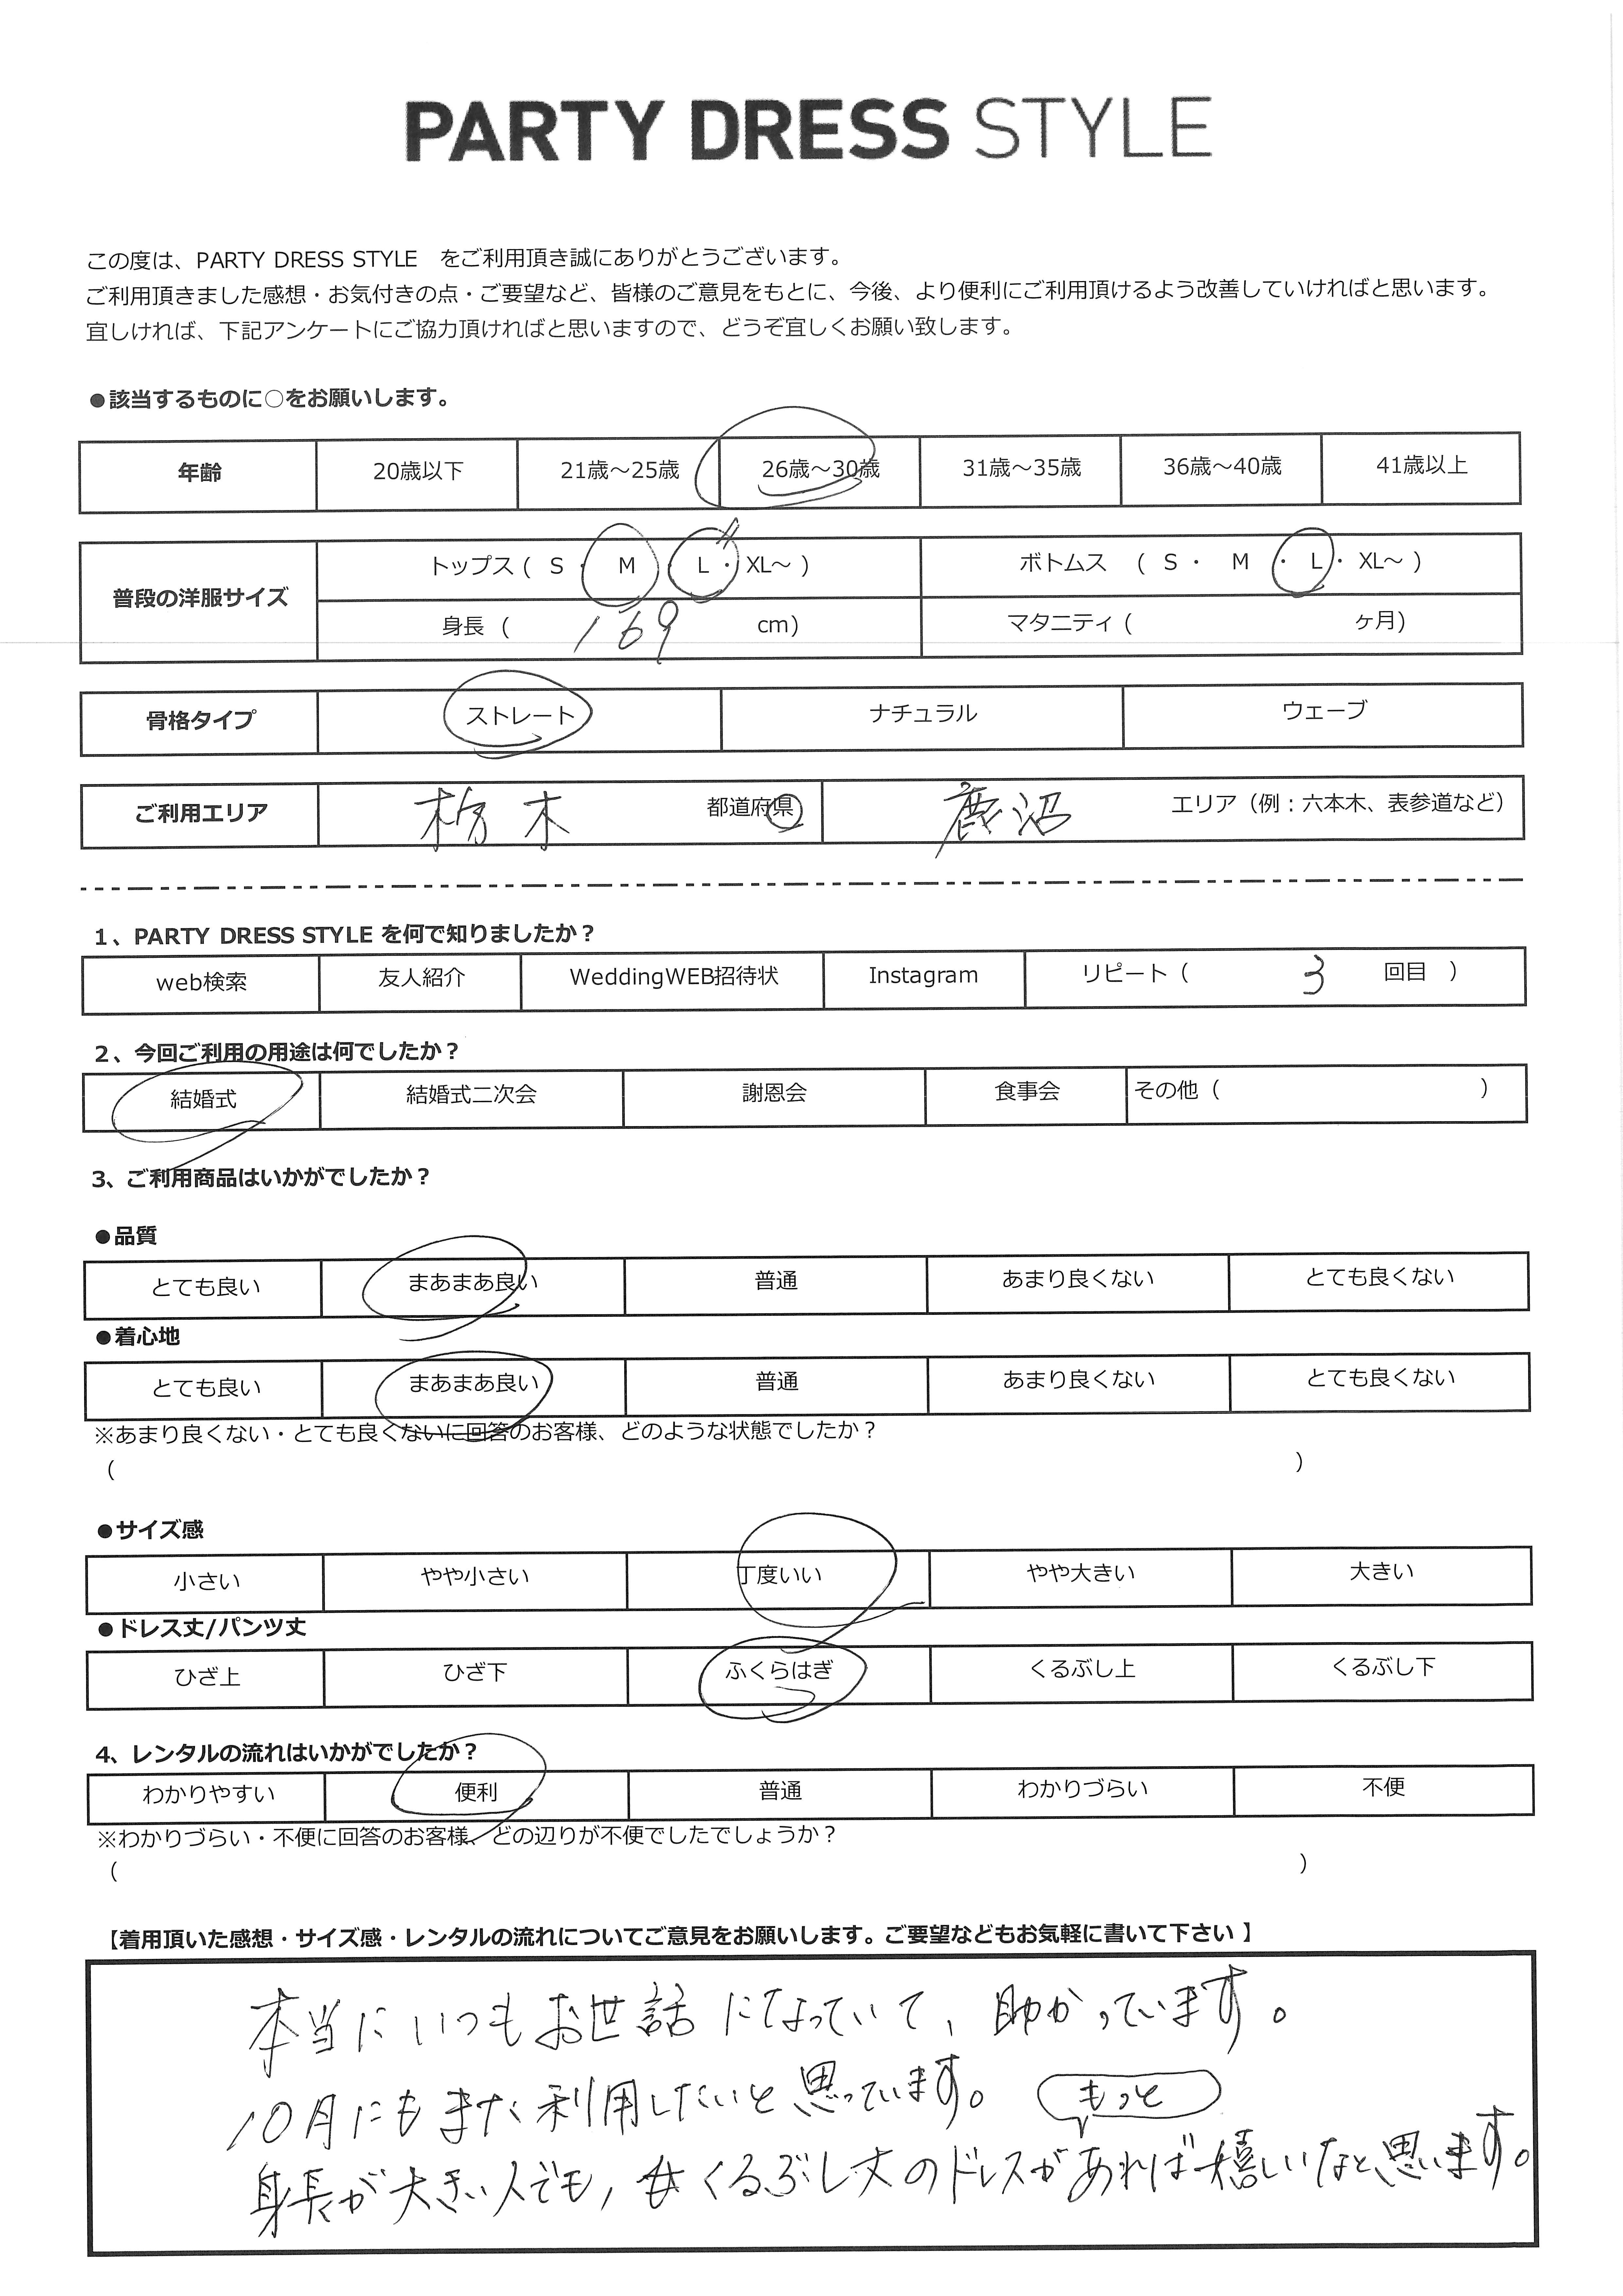 PARTY DRESS STYLE
この度は、PARTY DRESS STYLE をご利用頂き誠にありがとうございます。
ご利用頂きました感想・お気付きの点・ご要望など、皆様のご意見をもとに、今後、より便利にご利用頂けるよう改善していければと思います。
宜しければ、下記アンケートにご協力頂ければと思いますので、どうぞ宜しくお願い致します。
●該当するものに○をお願いします。
年齢 20歳以下 21歳～25歳 26歳～30歳 31歳～35歳 36歳～40歳 41歳以上
普段の洋服サイズ トップス ( S ・ M L ・ XL～ ) ボトムス ( S ・ M ・ L ・ XL～ )
身長 ( 169 cm) マタニティ ( ヶ月)
骨格タイプ ストレート ナチュラル ウェーブ
ご利用エリア 栃木 都道府県 鹿沼 エリア（例：六本木、表参道など）
1、PARTY DRESS STYLE を何で知りましたか？
web検索 友人紹介 WeddingWEB招待状 Instagram リピート（ 3 回目 ）
2、今回ご利用の用途は何でしたか？
結婚式 結婚式二次会 謝恩会 食事会 その他（ ）
3、ご利用商品はいかがでしたか？
●品質
とても良い まあまあ良い 普通 あまり良くない とても良くない
●着心地
とても良い まあまあ良い 普通 あまり良くない とても良くない
※あまり良くない・とても良くないに回答のお客様、どのような状態でしたか？
( )
●サイズ感
小さい やや小さい 丁度いい やや大きい 大きい
●ドレス丈/パンツ丈
ひざ上 ひざ下 ふくらはぎ くるぶし上 くるぶし下
4、レンタルの流れはいかがでしたか？
わかりやすい 便利 普通 わかりづらい 不便
※わかりづらい・不便に回答のお客様、どの辺りが不便でしたでしょうか？
( )
【着用頂いた感想・サイズ感・レンタルの流れについてご意見をお願いします。ご要望などもお気軽に書いて下さい 】
本当にいつもお世話になっていて、助かっています。
10月にもまた利用したいと思っています。
もっと
身長が大きい人でも、くるぶし丈のドレスがあれば嬉しいなと思います。